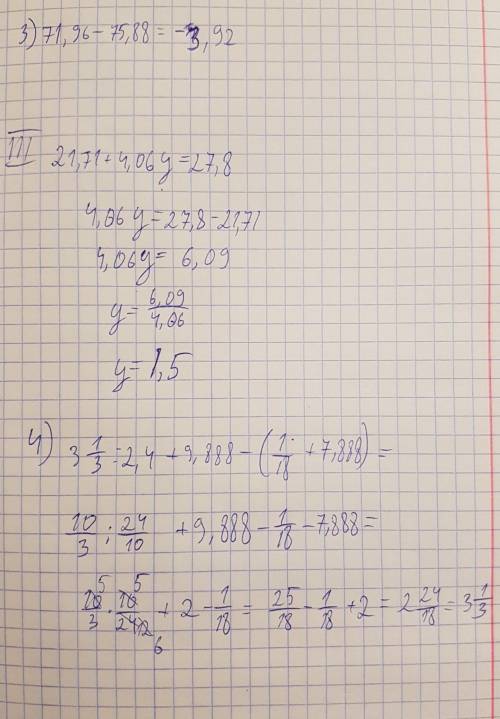 3) 71,96 - 75,88 = -3,92
III
21,71 + 4,06 y = 27,8
4,06 y = 27,8 - 21,71
4,06 y = 6,09
y = 6,09/4,06
y = 1,5
4) 3 1/3 : 2,4 + 9,888 - (1/18 + 7,888) =
10/3 : 24/10 + 9,888 - 1/18 - 7,888 =
10 5/3 · 10 5/24 12 6 + 2 - 1/18 = 25/18 - 1/18 + 2 = 2 24/18 = 3 1/3